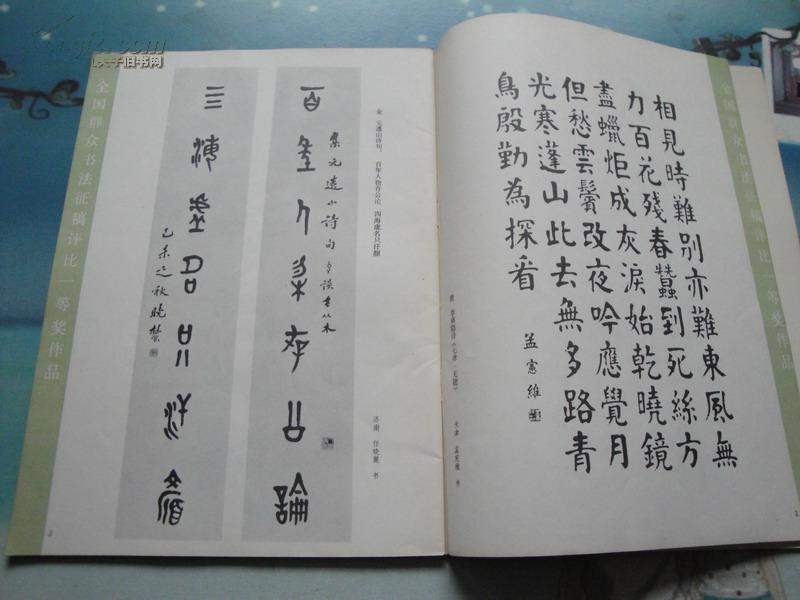 全国群众书法征稿评比一等奖作品
相見時難別亦難東風無
力百花殘春蠶到死絲方
盡蠟炬成灰淚始乾曉鏡
但愁雲鬢改夜吟應覺月
光寒蓬山此去無多路青
鳥殷勤為探看
孟憲維
唐 李商隐诗《七律·无题》
天津 孟宪维 书
2
金 元遗山诗句: 百年人物存公论 四海虚名只汗颜
济南 任晓麓 书
百年人物存公論
元遗山詩句
亖海虚名只汗顔
己未之秋晓
全国群众书法征稿评比一等奖作品